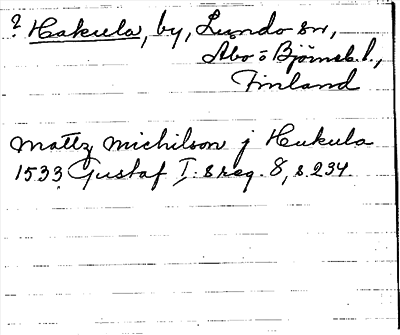 ? Hakula, by, Lundo sn,
Åbo o Björneb. l.,
Finland
Mattz Michilson j Hukula
1533 Gustaf I:s reg. 8, s. 234.